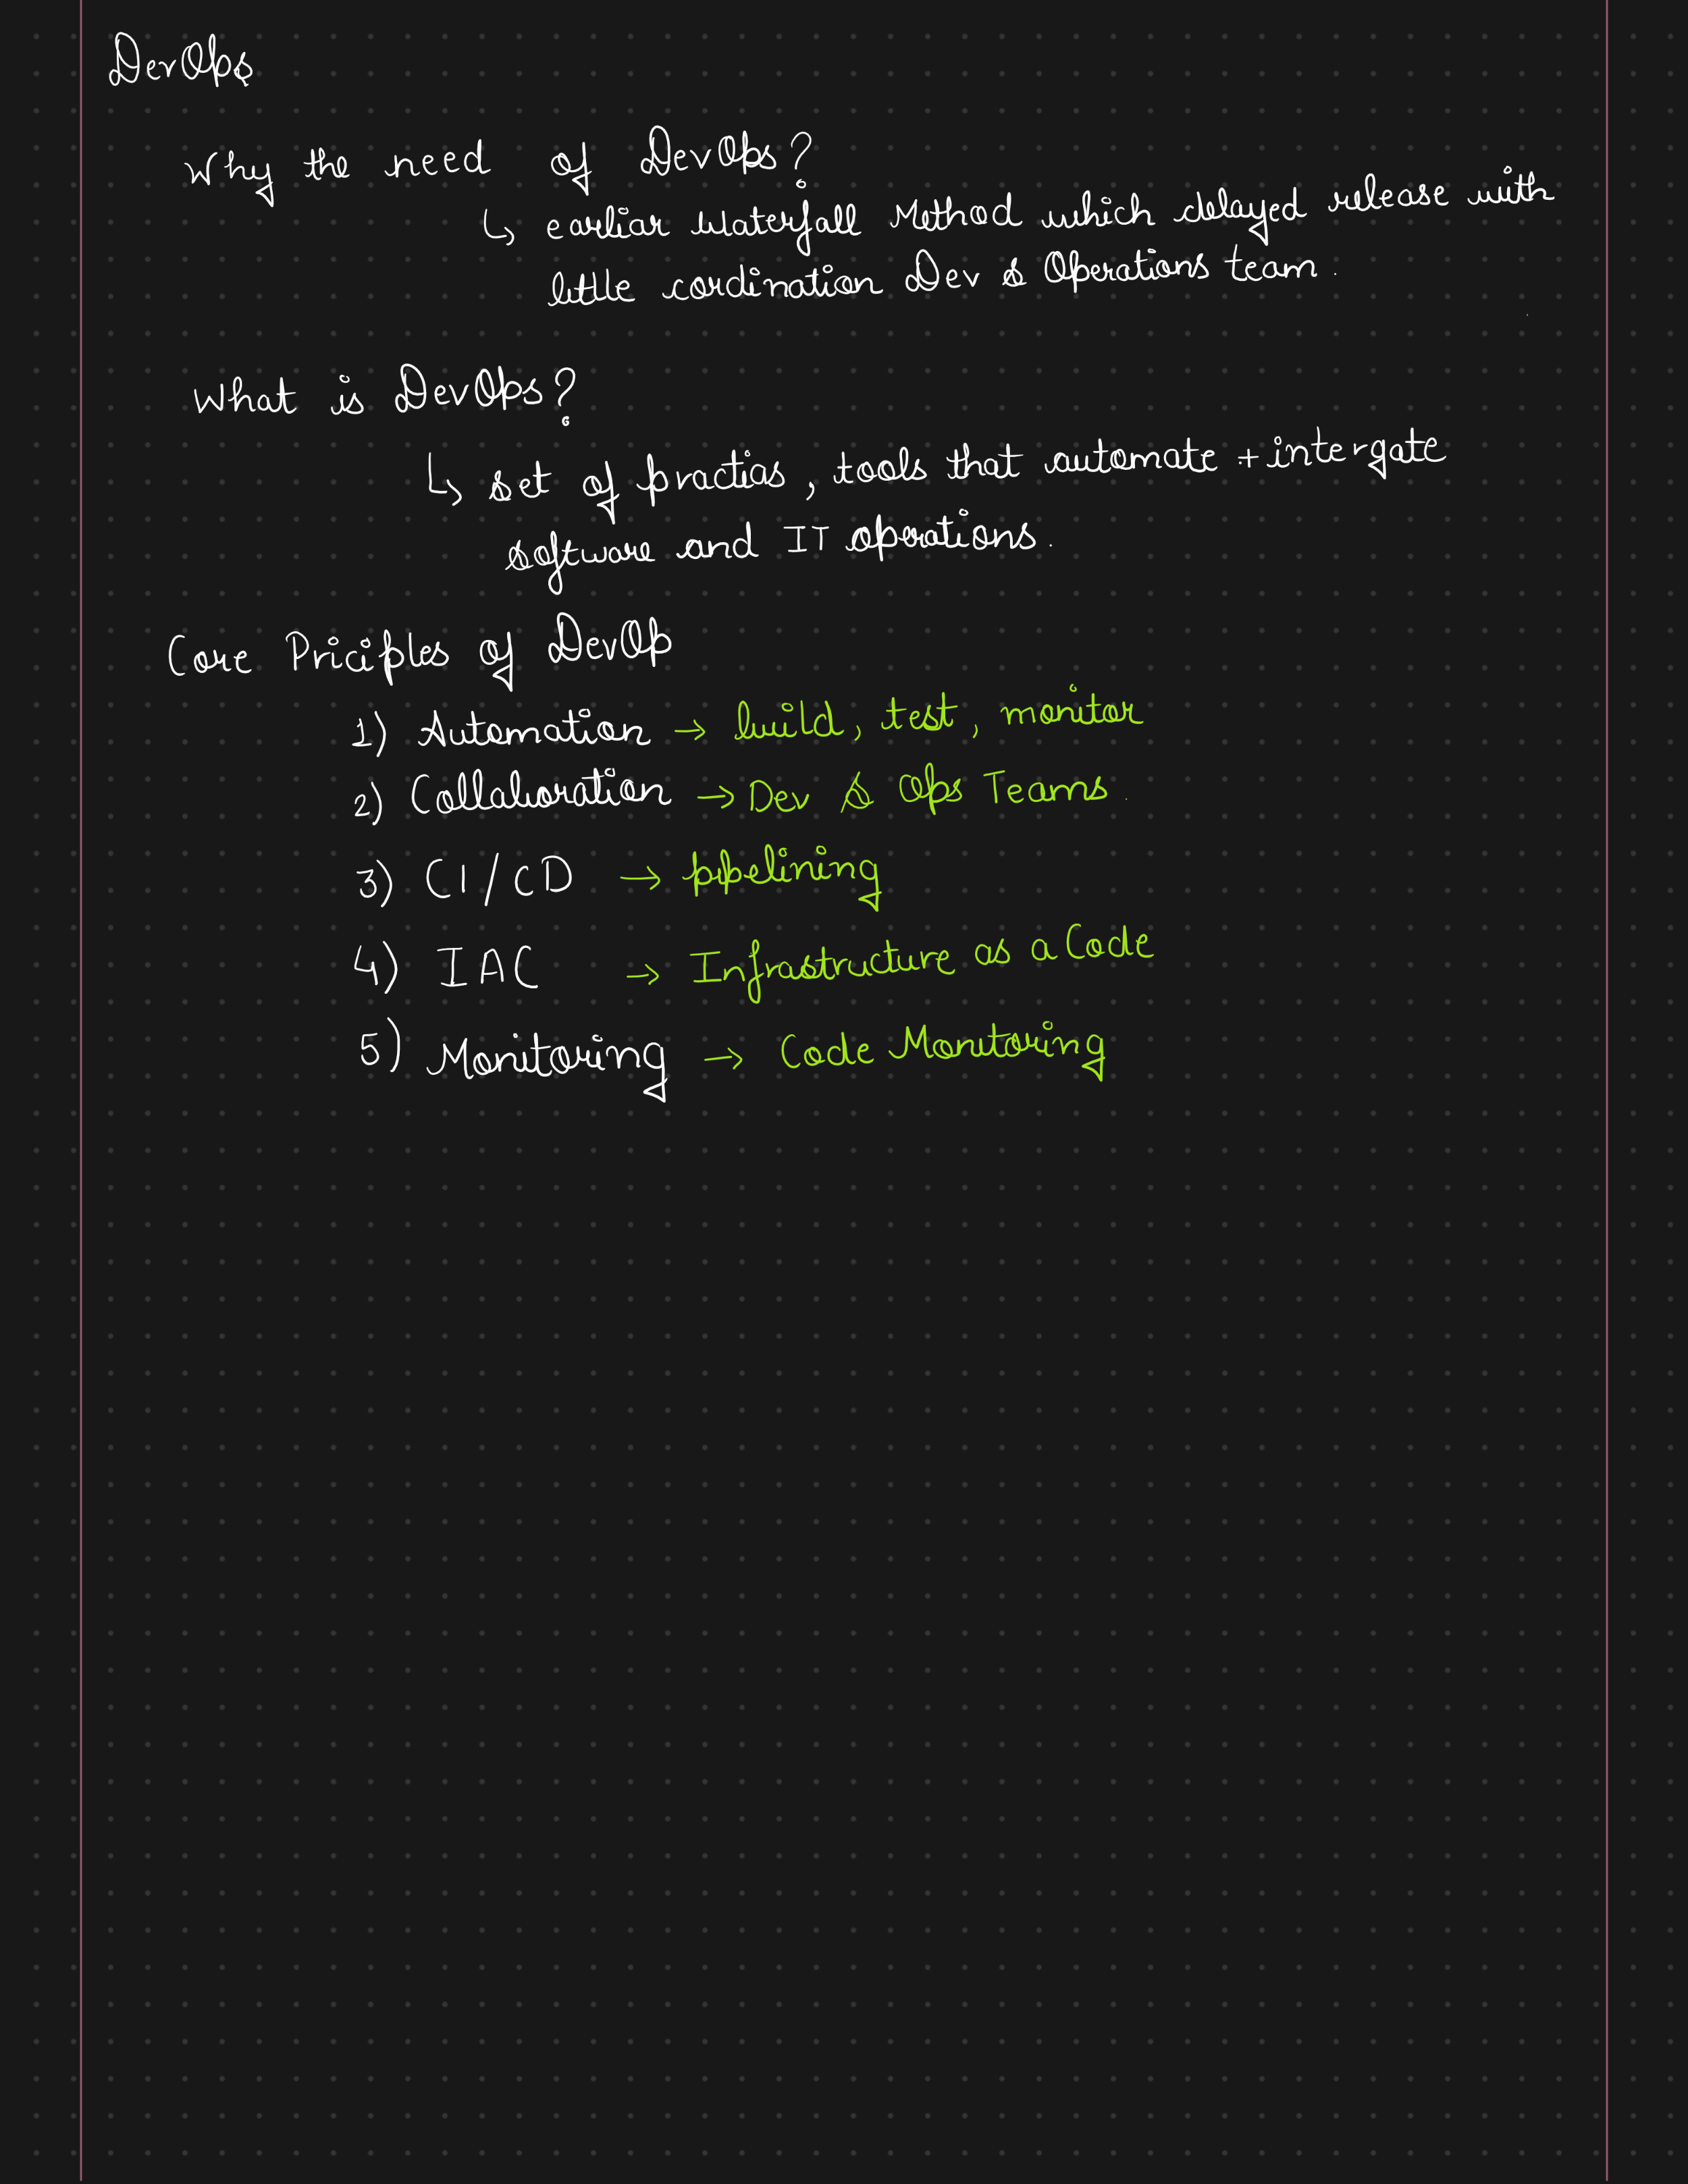 DevOps
Why the need of DevOps?
↳ earliar Waterfall Method which delayed release with
little cordination Dev & Operations team.
What is DevOps?
↳ set of practias, tools that automate + intergate
software and IT operations.
Core Priciples of DevOp
1) Automation → build, test, monitor
2) Collaboration → Dev & Ops Teams.
3) CI/CD → pipelining
4) IAC → Infrastructure as a Code
5) Monitoring → Code Monitoring